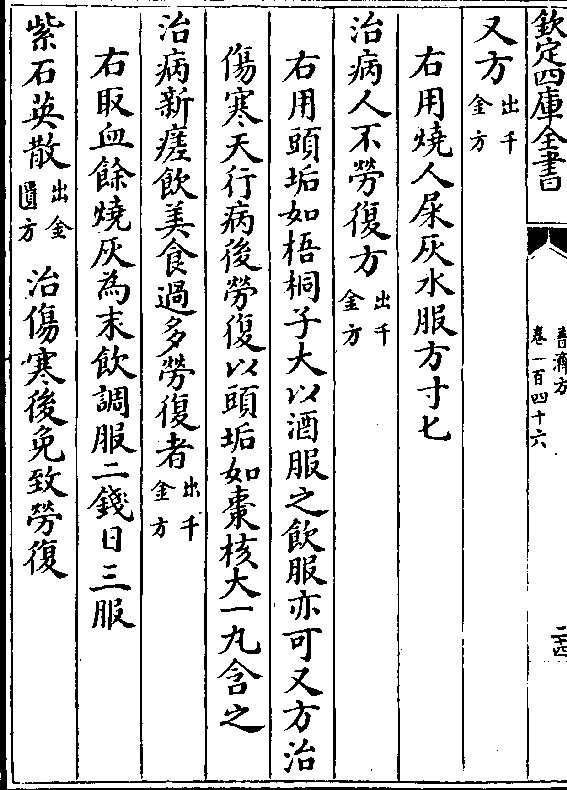 欽定四庫全書
普濟方
卷一百四十六
二十四
又方出千金方
右用燒人屎灰水服方寸匕
治病人不勞復方出千金方
右用頭垢如梧桐子大以酒服之飲服亦可又方治
傷寒天行病後勞復以頭垢如棗核大一丸含之
治病新瘥飲美食過多勞復者出千金方
右取血餘燒灰為末飲調服二錢日三服
紫石英散出金匱方 治傷寒後免致勞復